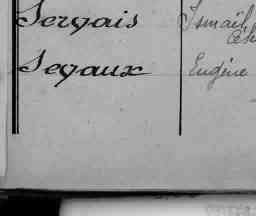 Servais Ismaël
Segaux Eugène